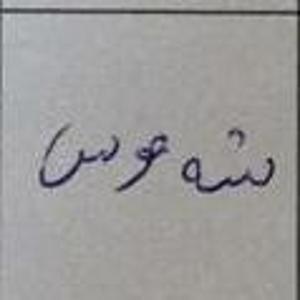 شه عروس